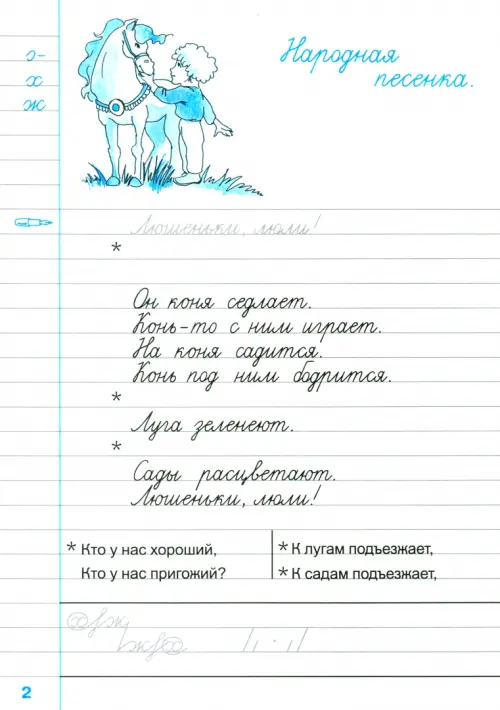 Народная
песенка.
э-
х
ж
Люшеньки, люли!
*
Он коня седлает.
Конь-то с ним играет.
На коня садится.
Конь под ним бодрится.
*
Луга зеленеют.
*
Сады расцветают.
Люшеньки, люли!
* Кто у нас хороший,
Кто у нас пригожий?
* К лугам подъезжает,
* К садам подъезжает,
2